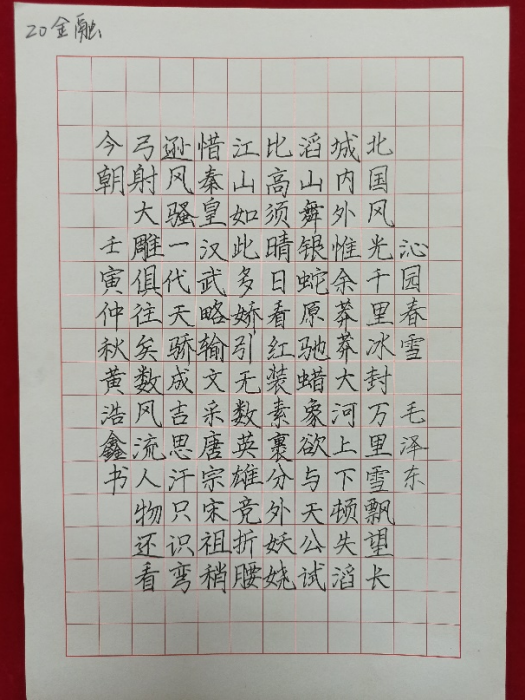 20金融
沁园春雪 毛泽东
北国风光千里冰封万里雪飘望长
城内外惟余莽莽大河上下顿失滔
滔山舞银蛇原驰蜡象欲与天公试
比高须晴日看红装素裹分外妖娆
江山如此多娇引无数英雄竞折腰
惜秦皇汉武略输文采唐宗宋祖稍
逊风骚一代天骄成吉思汗只识弯
弓射大雕俱往矣数风流人物还看
今朝 壬寅仲秋黄浩鑫书